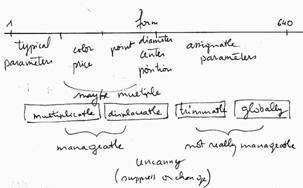 1 form 640
typical parameters
color price
point diameter center position
assignable parameters
maybe multiple
multiplicable displaceable trimmable globally
manageable
not really manageable
uncanny
(suppress or change)